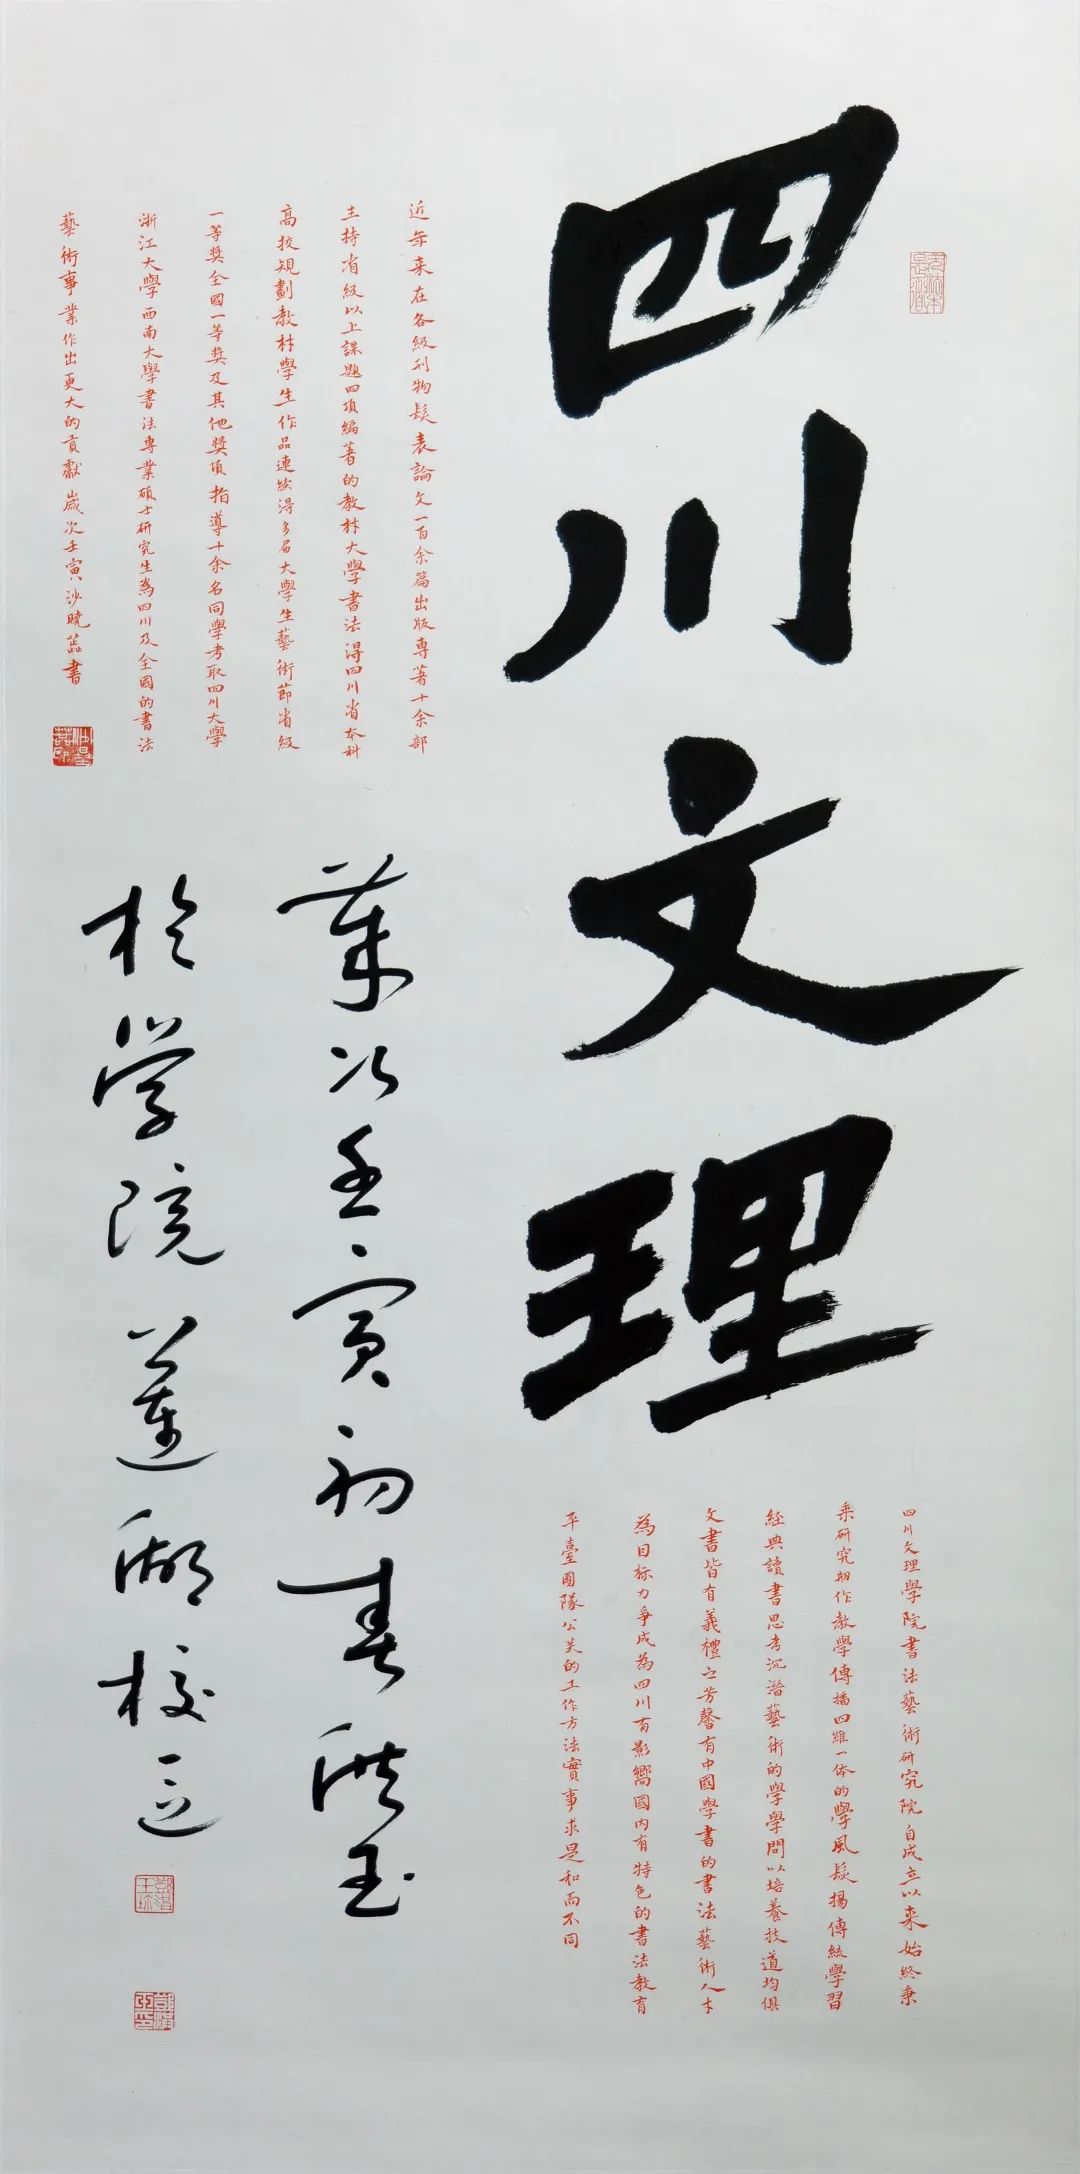 四川文理
四川文理學院書法藝術研究院自成立以来始終秉
乘研究創作教學傳播四維一体的學風髮揚傳統學習
經典讀書思考沉潛藝術的學學問以培養技道均俱
文書皆有義禮之芳馨有中國學書的書法藝術人才
為目标力争成為四川有影嚮國内有特色的書法教育
平臺團隊公关的工作方法實事求是和而不同
近年来在各級刊物髮表論文一百余篇出版専著十余部
主持省級以上課題四項編著的教材大學書法得四川省本科
高校規劃教材學生作品連續得多屆大學生藝術節省級
一等奖全國一等奖及其他奖項指導十余名同學考取四川大學
浙江大學西南大學書法専業碩士研究生為四川及全國的書法
藝術事業作出更大的貢獻歲次壬寅沙曉蕊書
歲次壬寅初春洪玉
於学院蓮湖校區